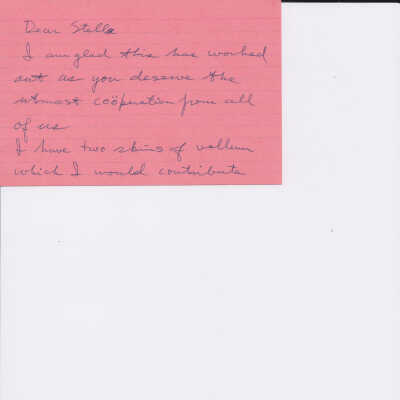 Dear Stella
I am glad this has worked
out as you deserve the
utmost coöperation from all
of us
I have two skins of vellum
which I would contribute